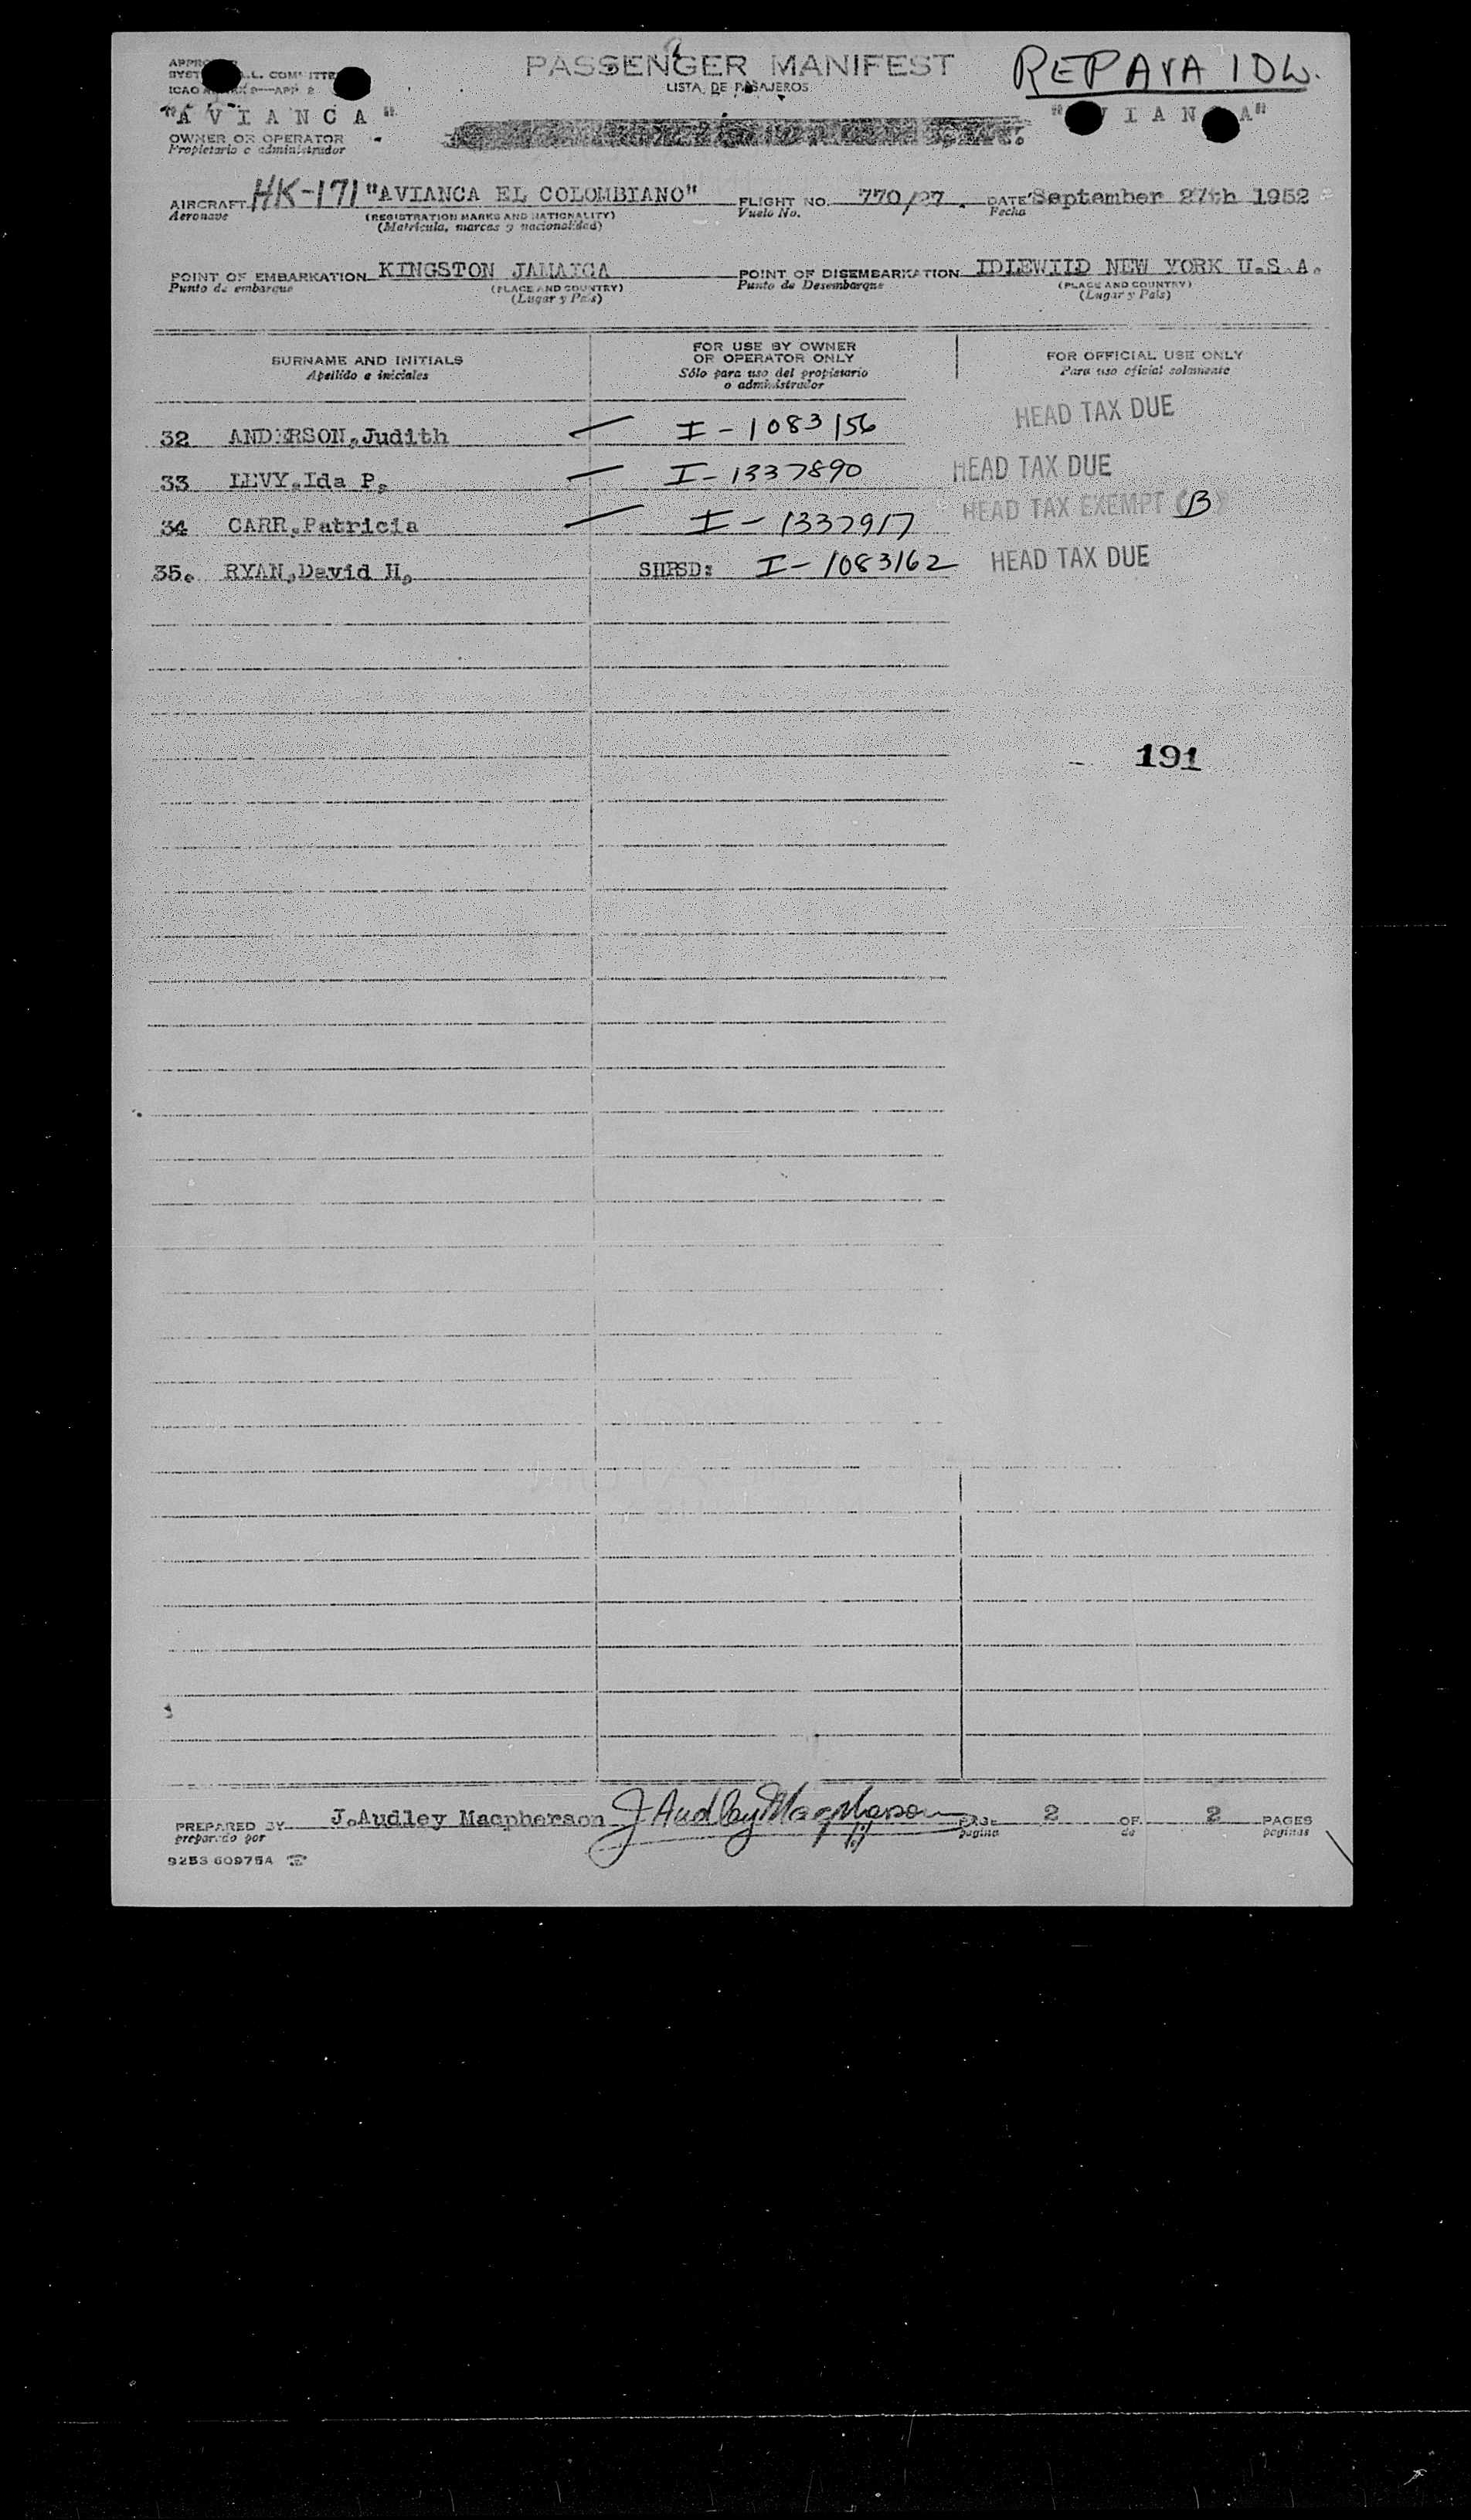 PASSENGER MANIFEST
LISTA DE PASAJEROS
REPAVA IDW.
ICAO
"AVIANCA"
OWNER OR OPERATOR
Propietario o administrador
AIRCRAFT HK-171 "AVIANCA EL COLOMBIANO" FLIGHT NO. 770/27. DATE September 27th 1952
Aeronave (REGISTRATION MARKS AND NATIONALITY) Vuelo No. Fecha
(Matrícula, marcas y nacionalidad)
POINT OF EMBARKATION KINGSTON JAMAICA POINT OF DISEMBARKATION IDLEWILD NEW YORK U.S.A.
Punto de embarque (PLACE AND COUNTRY) Punto de Desembarque (PLACE AND COUNTRY)
(Lugar y País) (Lugar y País)
SURNAME AND INITIALS FOR USE BY OWNER OR OPERATOR ONLY FOR OFFICIAL USE ONLY
Apellido e iniciales Sólo para uso del propietario o administrador Para uso oficial solamente
32 ANDERSON,Judith — I-1083156 HEAD TAX DUE
33 LEVY,Ida P, — I-1337890 HEAD TAX DUE
34 CARR,Patricia — I-1337917 HEAD TAX EXEMPT (B)
35. RYAN,David H, SHPSD: I-1083162 HEAD TAX DUE
191
PREPARED BY J.Audley Macpherson J Audley Macpherson PAGE 2 OF 2 PAGES
preparado por pagina de paginas
9253 60975A